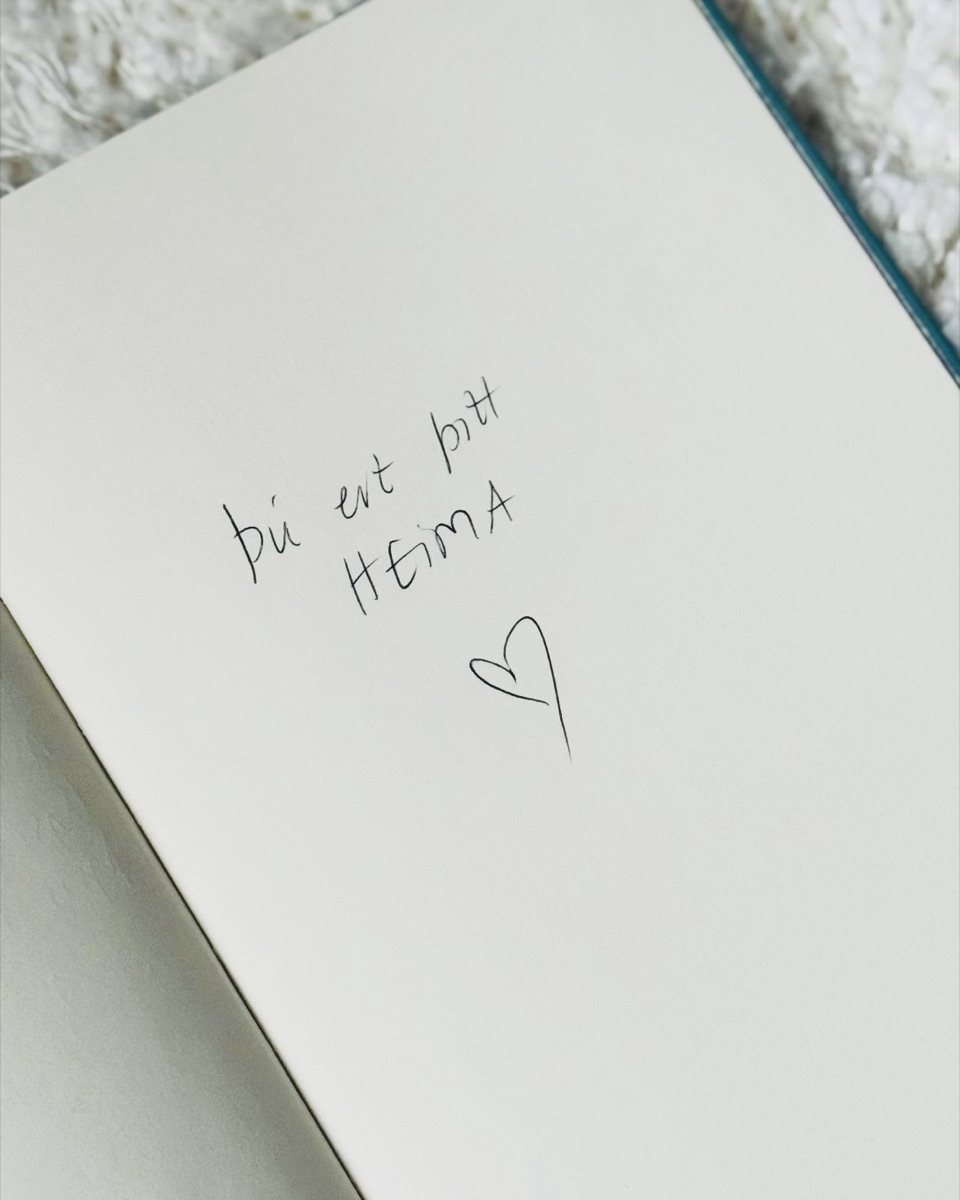 þú ert þitt
HEiMA